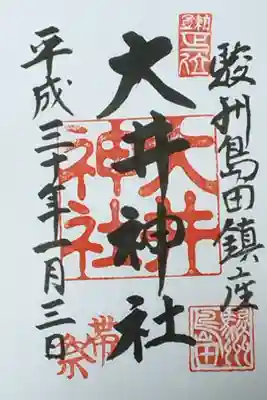 駿州島田鎮座
大井神社
大井神社
平成三十年一月三日
帯祭
駿州島田